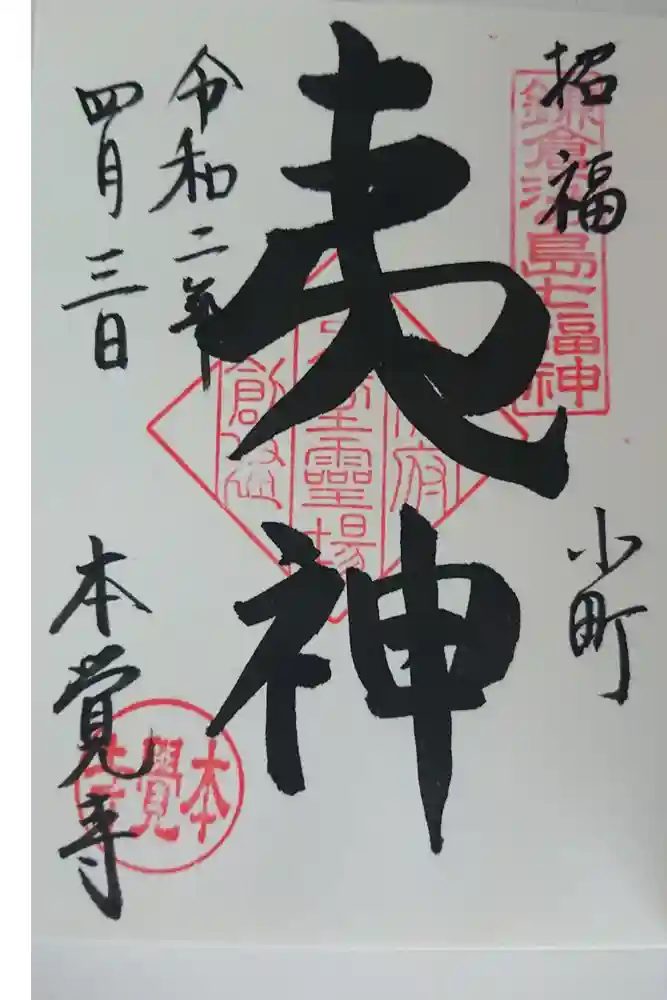 招福
鎌倉江島七福神
小町
夷神
令和二年
四月三日
本覺寺
本覺寺